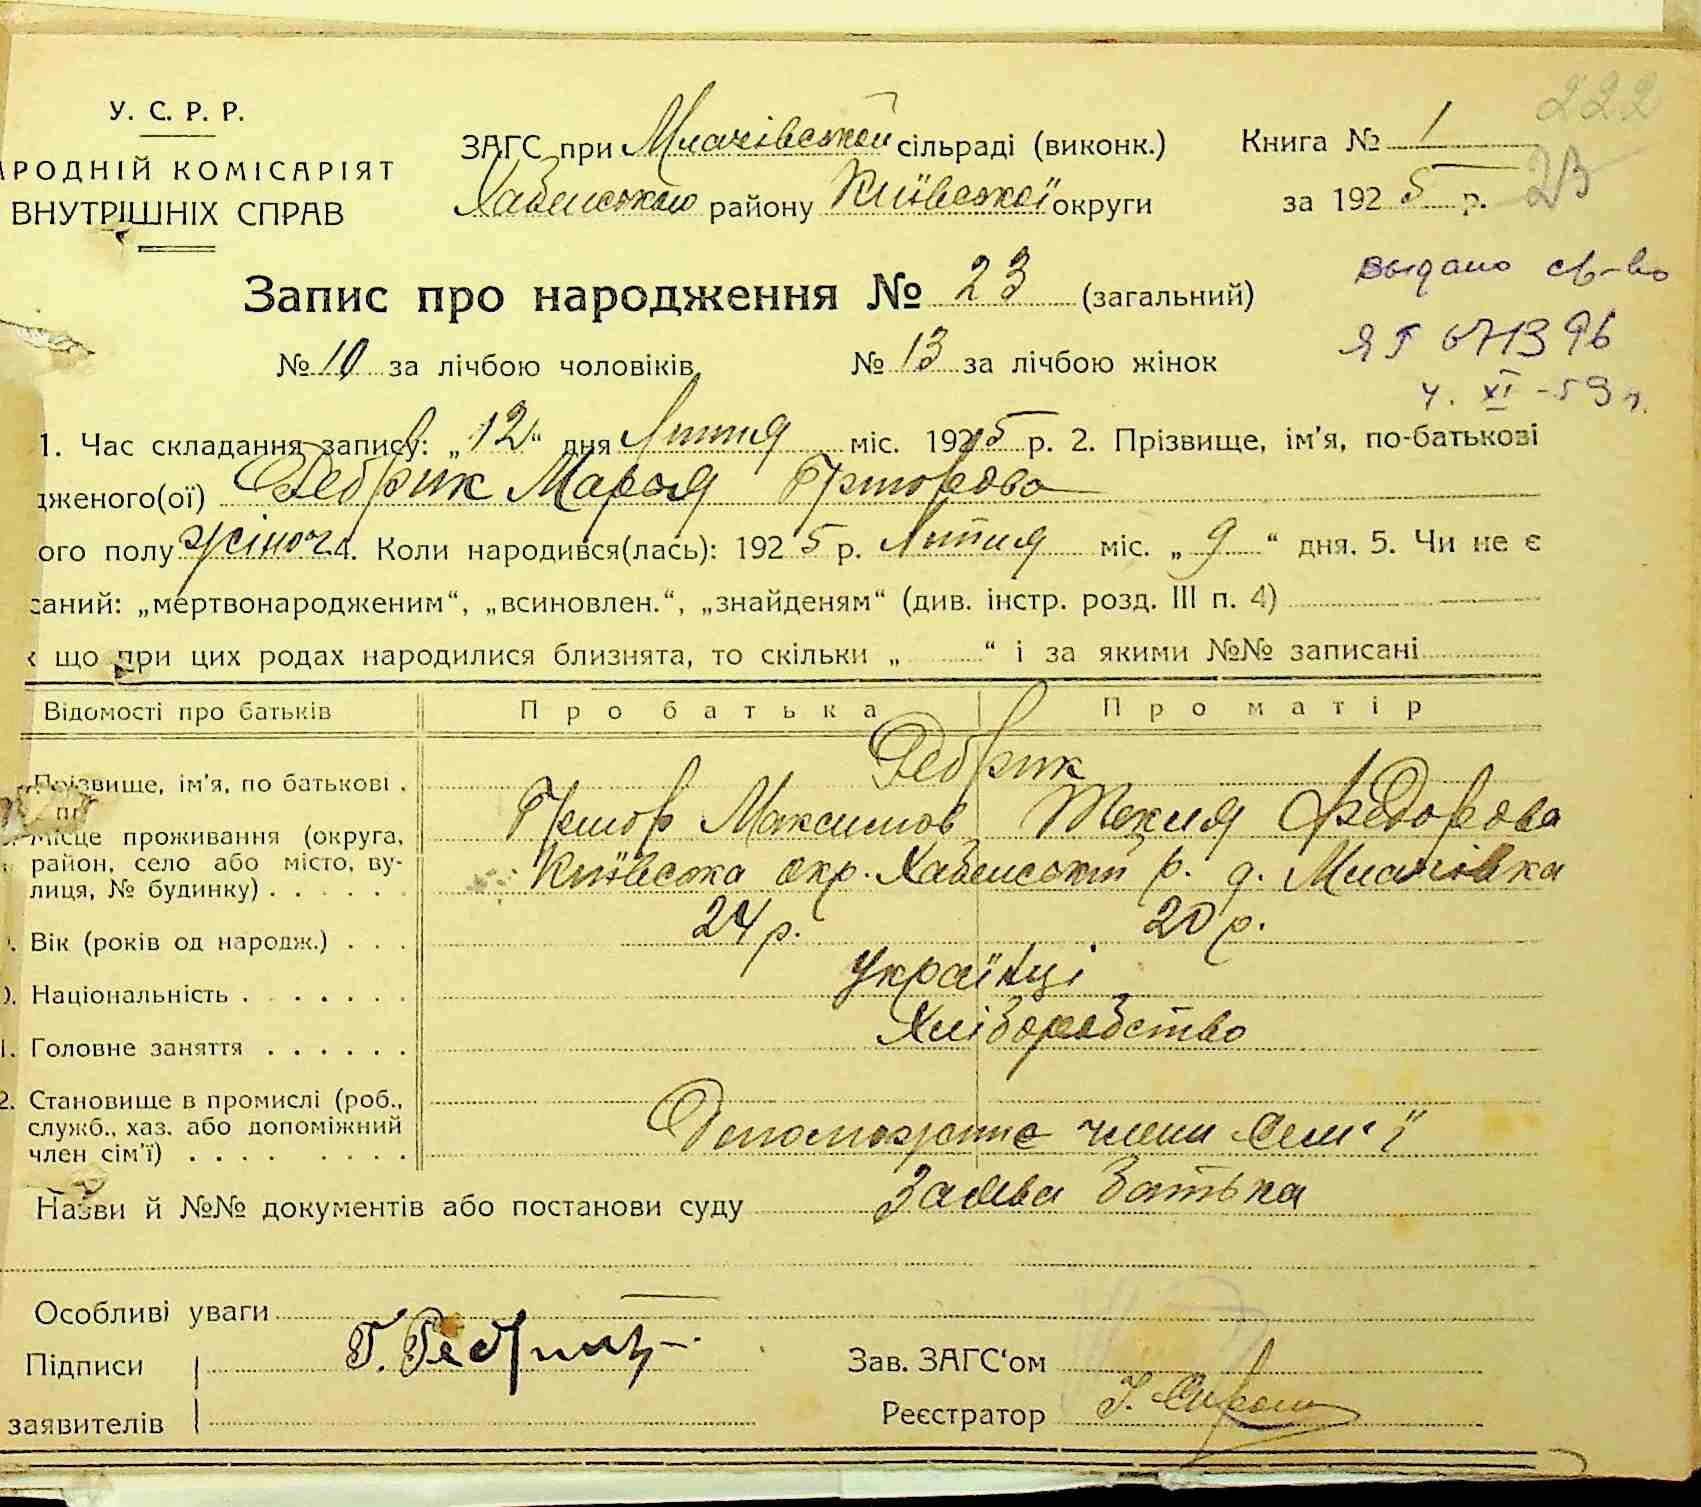 222
У. С. Р. Р.
АРОДНІЙ КОМІСАРІЯТ
ВНУТРІШНІХ СПРАВ
ЗАГС при Млачівській сільраді (виконк.)
Хабенського району Київської округи
Книга № 1
за 1925 р. 23
выдано св-во
ЯГ 671396
4. XI - 59 г.
Запис про народження № 23 (загальний)
№ 10 за лічбою чоловіків № 13 за лічбою жінок
1. Час складання запису: „12“ дня Липня міс. 1925 р. 2. Прізвище, ім'я, по-батькові
дженого(ої) Редрик Марья Григорова
ого полу жіноч. 4. Коли народився(лась): 1925 р. Липня міс. „9“ дня. 5. Чи не є
саний: „мертвонародженим“, „всиновлен.“, „знайденям“ (див. інстр. розд. III п. 4)
к що при цих родах народилися близнята, то скільки „ “ і за якими №№ записані
Відомості про батьків Про батька Про матір
Редрик
Прізвище, ім'я, по батькові . Григор Максимов Текля Федорова
Місце проживання (округа,
район, село або місто, ву-
лиця, № будинку) . . . . . . Київська окр. Хабенський р. д. Млачівка
. Вік (років од народж.) . . . 24 р. 20 р.
). Національність . . . . . . . Українці
1. Головне заняття . . . . . . Хліборобство
2. Становище в промислі (роб.,
служб., хаз. або допоміжний
член сім'ї) . . . . . . . . Допомагаючі члени сем'ї
Назви й №№ документів або постанови суду Заява батька
Особливі уваги
Підписи Г. Редрик Зав. ЗАГС‘ом
заявителів Реєстратор